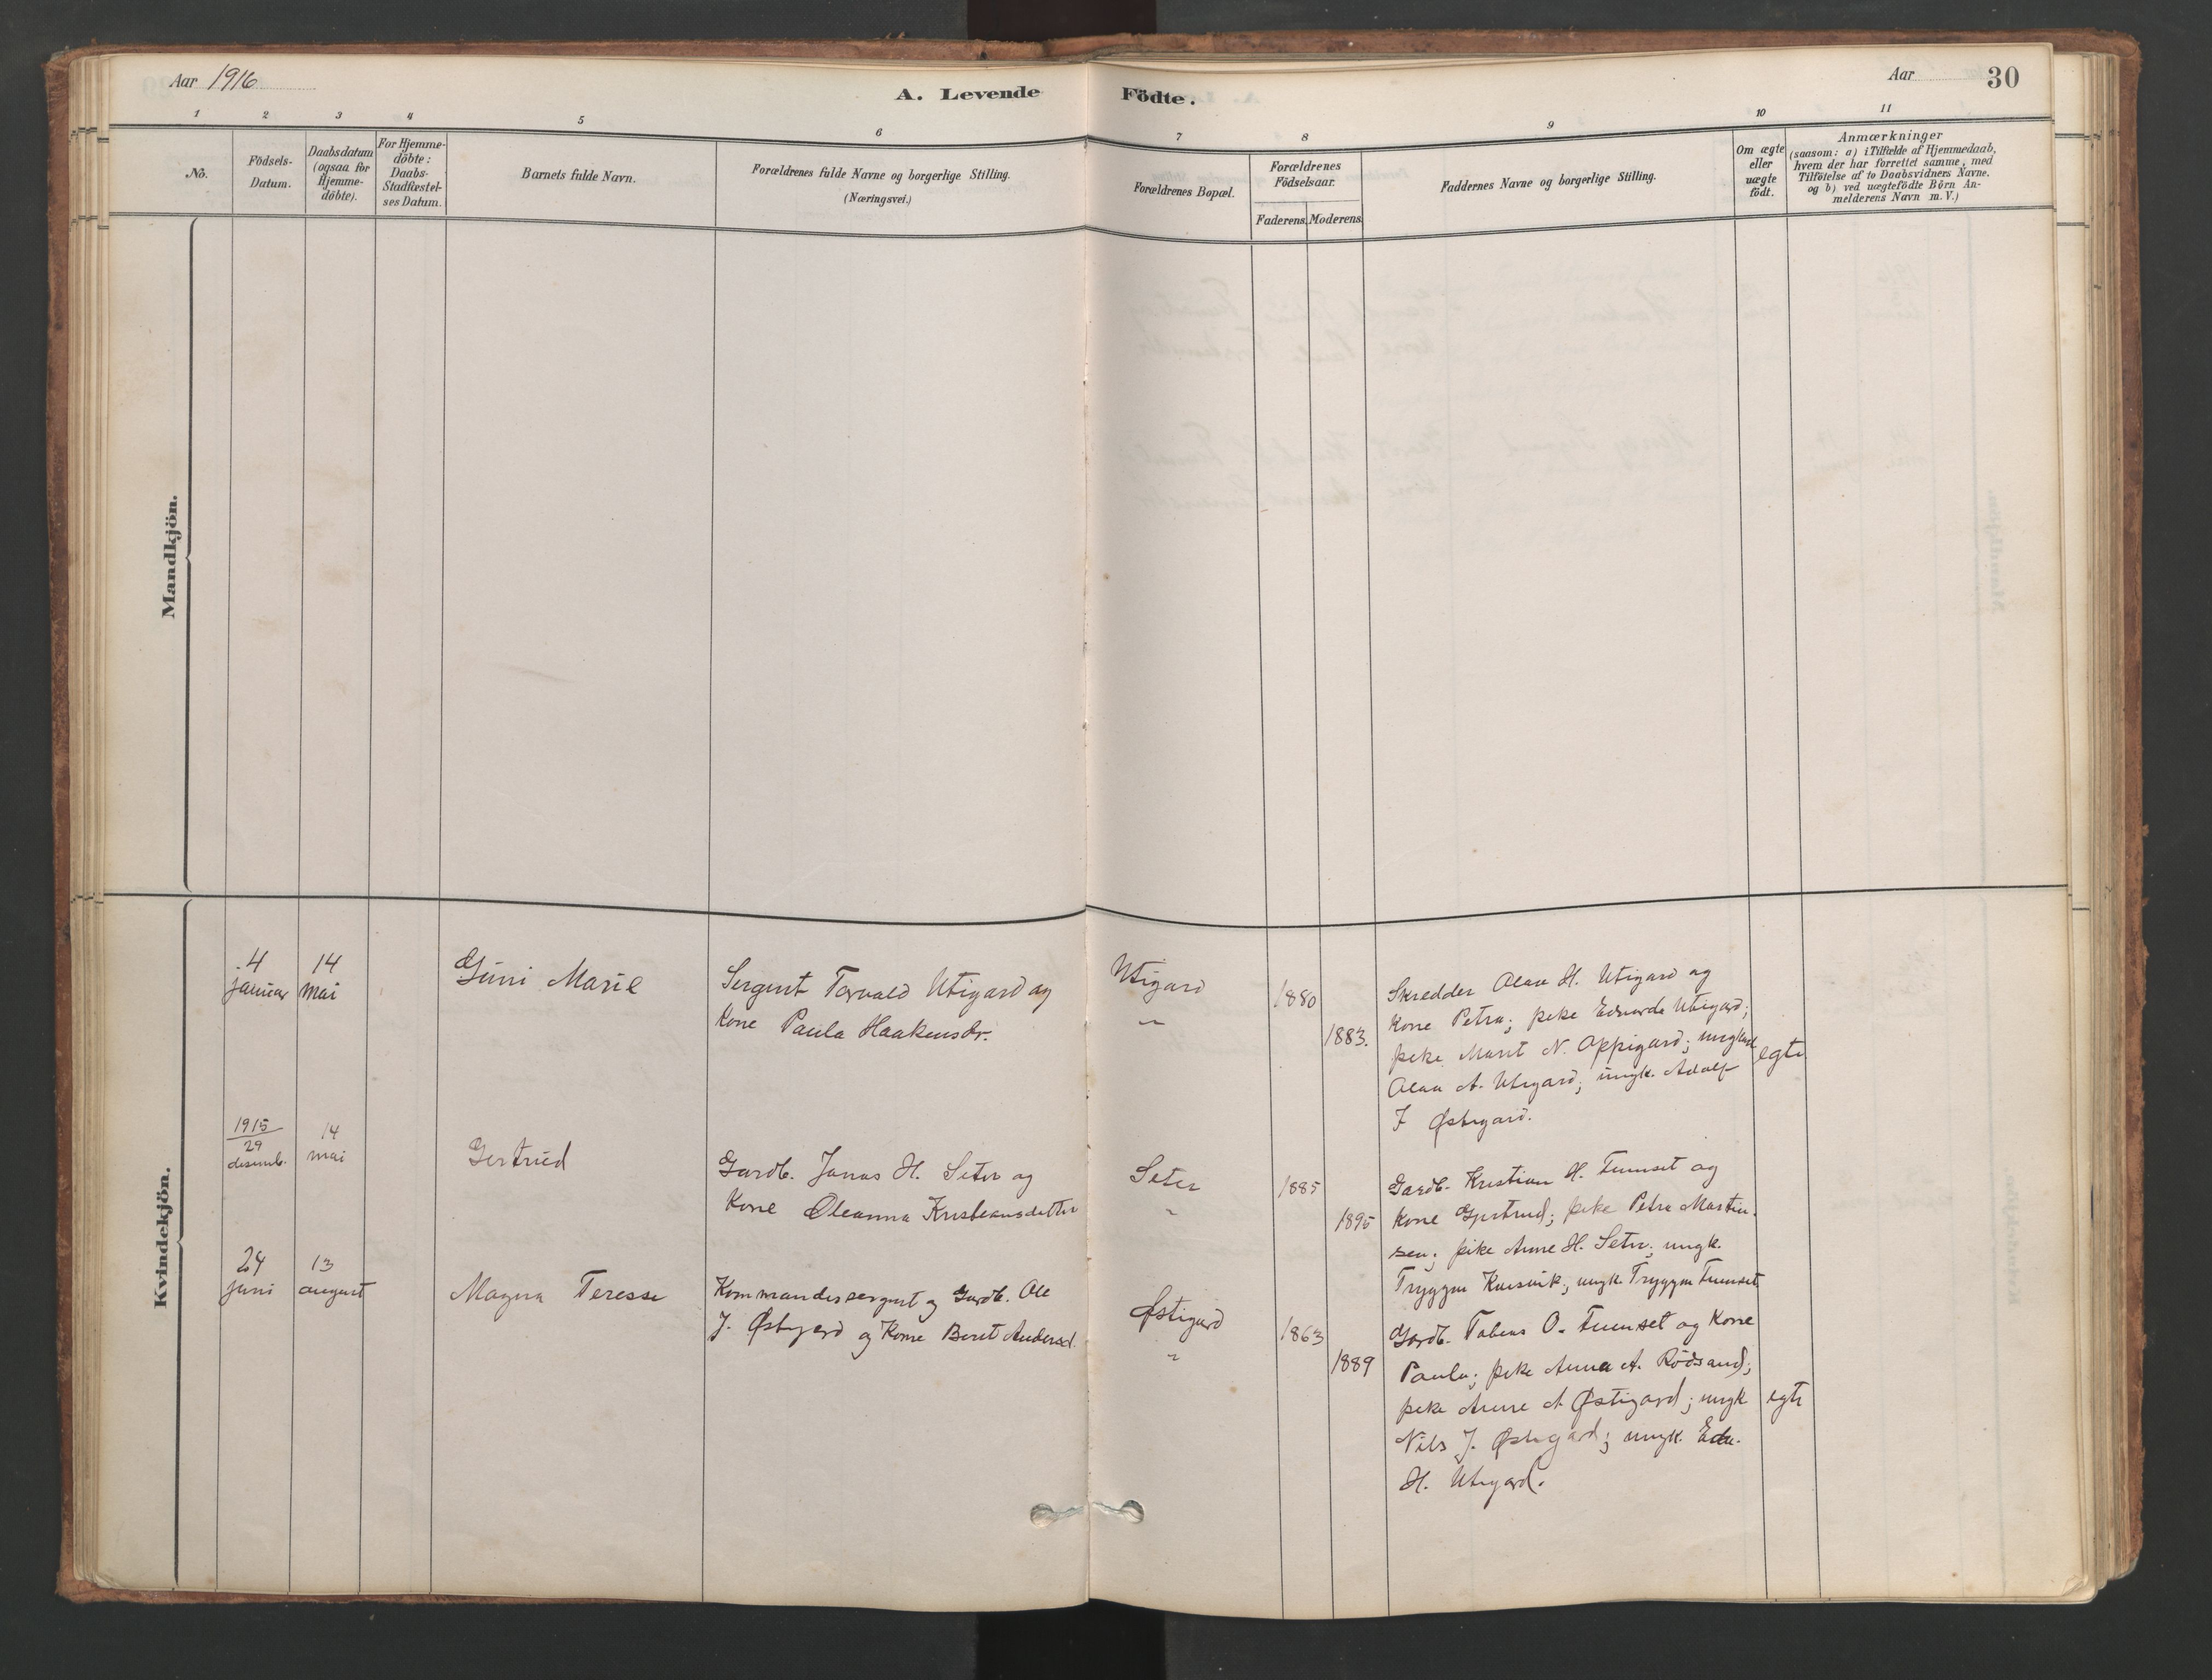 Aar 1916
A. Levende Födte.
Aar
30
1 2 3 4 5 6 7 8 9 10 11
No.
Födsels-
Datum.
Daabsdatum
(ogsaa for
Hjemme-
döbte).
For Hjemme-
döbte:
Daabs-
Stadfæstel-
ses Datum.
Barnets fulde Navn.
Forældrenes fulde Navne og borgerlige Stilling.
(Næringsvei.)
Forældrenes Bopæl.
Forældrenes
Födselsaar.
Faderens. Moderens.
Faddernes Navne og borgerlige Stilling.
Om ægte
eller
uægte
födt.
Anmærkninger
(saasom: a) i Tilfælde af Hjemmedaab,
hvem der har forrettet samme, med
Tilföielse af to Daabsvidners Navne,
og b) ved uægtefödte Börn An-
melderens Navn m. V.)
Mandkjön.
Kvindekjön.
4
januar
14
mai
Guni Marie
Sergent Torvald Utigard og
kone Paula Haakensdr.
Utigard
"
1880
1883.
Skredder Olaa H. Utigard og
kone Petra; pike Edvarda Utigard;
pike Marit N. Oppigard; ungkarl
Olaa A. Utigard; ungk. Adolf
J Østigard.
egte
1915
29
desemb.
14
mai
Gertrud
Gardb. Jonas H. Seter og
kone Oleanna Kristiansdatter
Seter
"
1885
1895
Gardb. Kristian H. Tuenset og
kone Gjertrud; pike Petra Martin-
sen; pike Anne H. Seter; ungk.
Tryggve ungk. Tryggve Tuenset
24
juni
13
august
Magna Teresse
Kommandersergent og Gardb. Ole
J. Østigard og kone Beret Andersd.
Østigard
"
1863
1889
Gardb. Tobias O. Tuenset og kone
Paula; pike Anna A. Rødsand;
pike Anne A Østigard; ungk
Nils J. Østigard; ungk. Edv.
H. Utigard.
egte